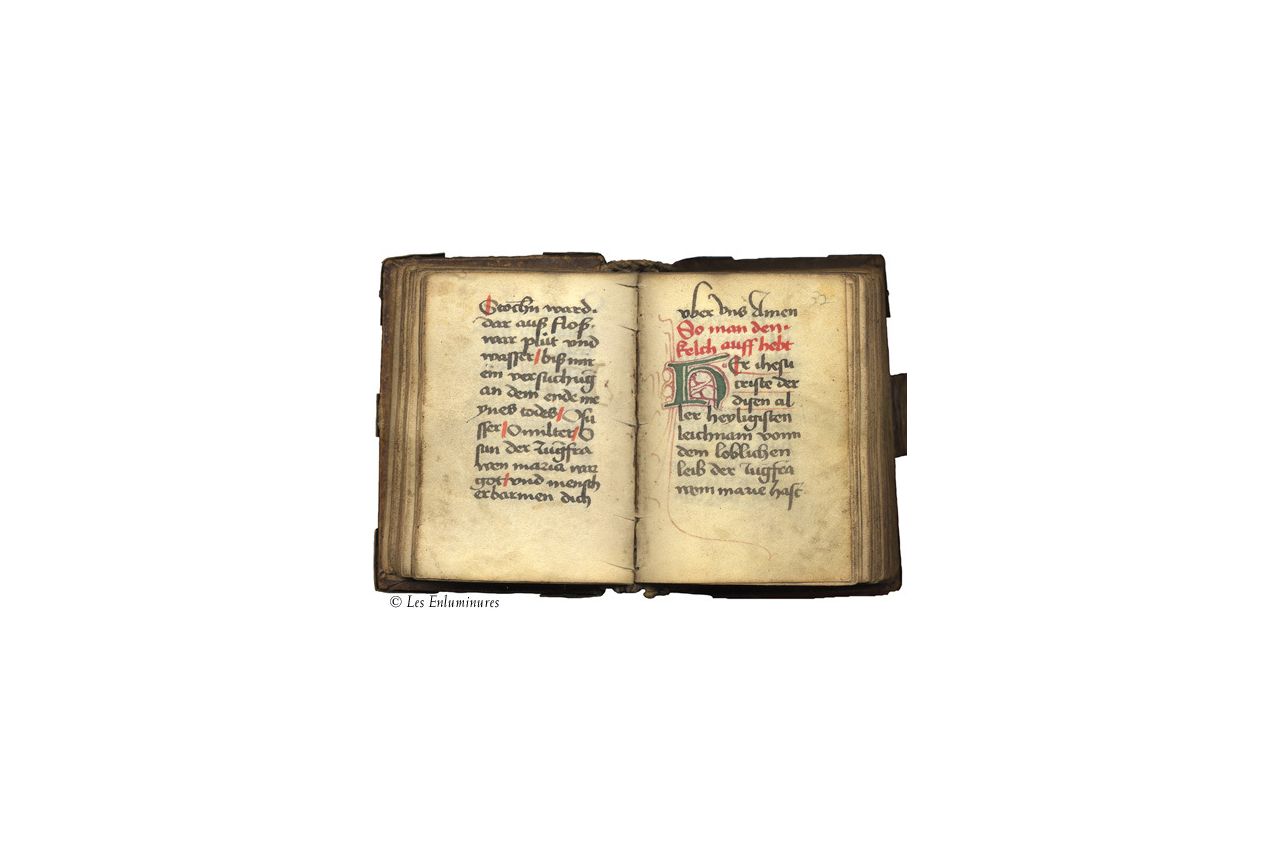 Stochn ward.
dar auß floß.
war plut vnd
wasser biß mir
ein versuchug
an dem ende me
ynes todes O su
sser O milter O
sun der Jugfra
wen maria war
got vnd mensch
erbarmen dich
vber vns Amen
So man den.
kelch auff hebt
HEr ihesu
criste der
disen al
ler heyligisten
leichnam vonn
dem loblichen
leib der Jugfra
wenn marie hast
32
© Les Enluminures